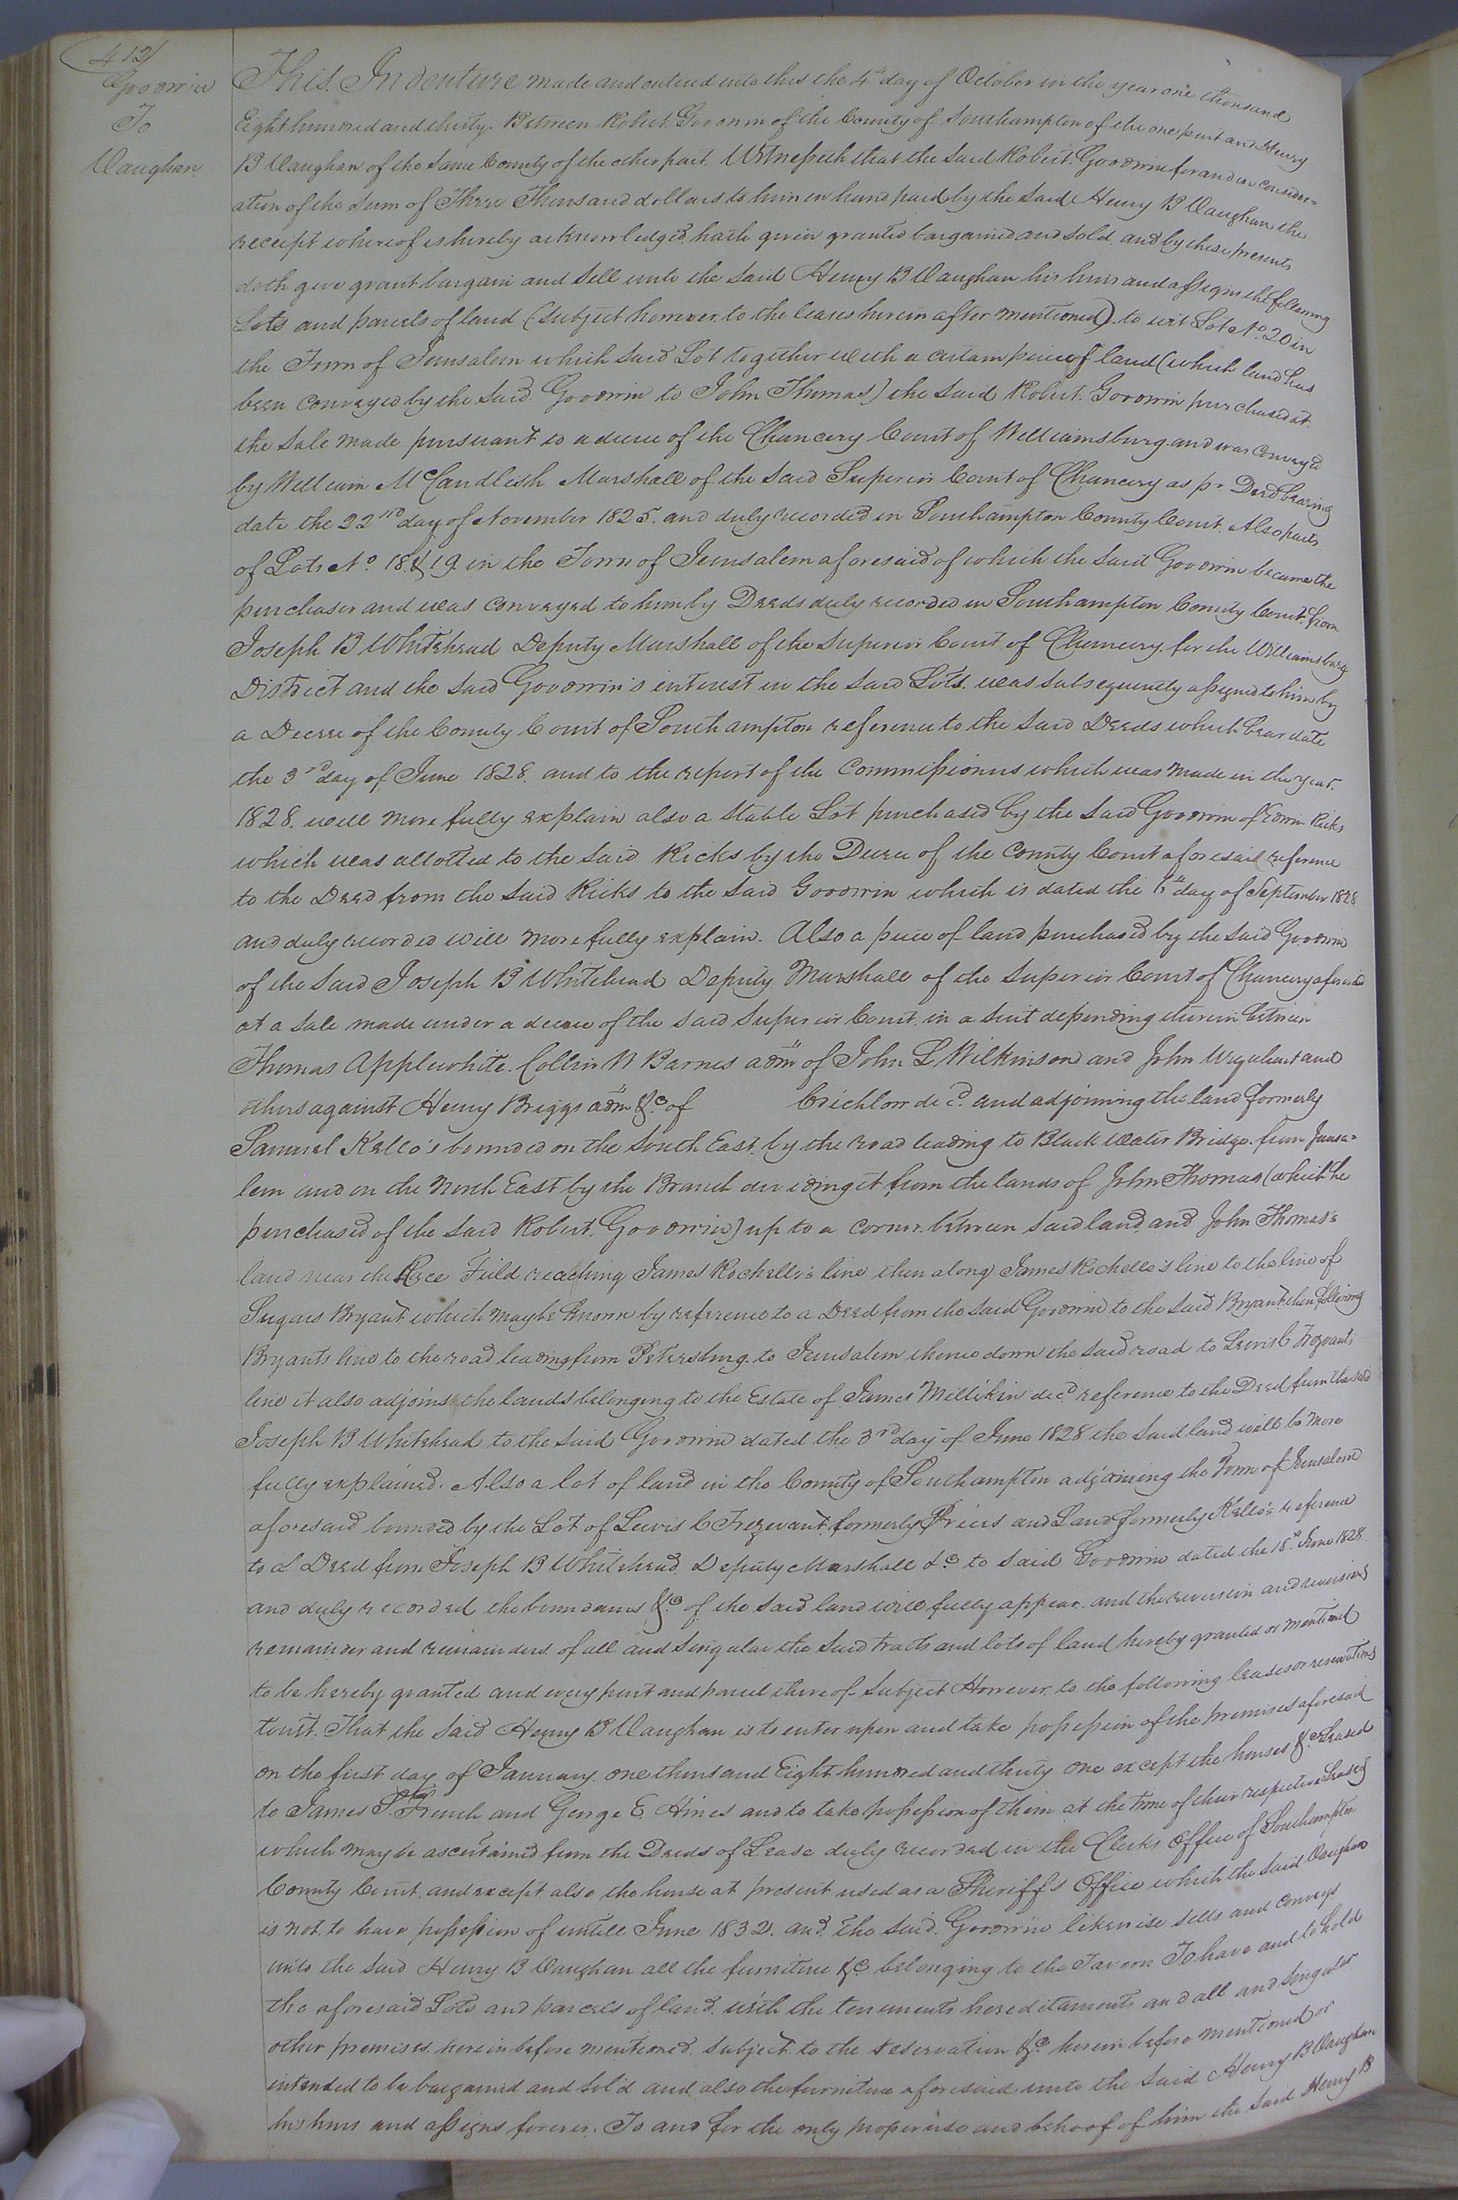 412
Goodwin
To
Vaughan
This Indenture made and entered into this the 4th day of October in the year one thousand
Eight hundred and thirty. Between Robert Goodwin of the County of Southampton of the one part and Henry
B Vaughan of the same County of the other part. Witnesseth that the said Robert Goodwin for and in consider=
ation of the sum of Three Thousand dollars to him in hand paid by the said Henry B Vaughan the
receipt whereof is hereby acknowledged, hath given granted bargained and sold, and by these presents
doth give grant bargain and sell unto the said Henry B Vaughan his heirs and assigns the following
Lots and parcels of land (subject however to the leases herein after mentioned) to wit Lot No. 20 in
the Town of Jerusalem which said Lot together with a certain piece of land (which land has
been conveyed by the said Goodwin to John Thomas) the said Robert Goodwin purchased at
the sale made pursuant to a decree of the Chancery Court of Williamsburg and was conveyed
by William McCandlish Marshall of the said Superior Court of Chancery as pr Deed bearing
date the 22nd day of November 1825. and duly recorded in Southampton County Court. Also parts
of Lots No. 18 & 19 in the Town of Jerusalem aforesaid of which the said Goodwin became the
purchaser and was conveyed to him by Deeds duly recorded in Southampton County Court from
Joseph B Whitehead Deputy Marshall of the Superior Court of Chancery for the Williamsburg
District and the said Goodwin's interest in the said Lots was subsequently assigned to him by
a Decree of the County Court of Southampton reference to the said Deeds which bear date
the 3rd day of June 1828, and to the report of the Commissioners which was made in the year
1828. will more fully explain also a Stable Lot purchased by the said Goodwin of Edwin Ricks
which was allotted to the said Ricks by the Decree of the County Court aforesaid reference
to the Deed from the said Ricks to the said Goodwin which is dated the 6th day of September 1828
and duly recorded will more fully explain. Also a piece of land purchased by the said Goodwin
of the said Joseph B Whitehead Deputy Marshall of the Superior Court of Chancery aforesaid
at a sale made under a decree of the said Superior Court in a suit depending therein between
Thomas Applewhite. Collin W Barnes adm of John L Wilkinson and John Urquhart and
others against Henry Briggs adm &c of Crichlow decd. and adjoining the land formerly
Samuel Kello's bounded on the South East by the road leading to Black Water Bridge from Jerusa=
lem and on the North East by the Branch dividing it from the lands of John Thomas (which he
purchased of the said Robert Goodwin) up to a corner between said land and John Thomas's
land near the Race Field reaching James Rochelle's line then along James Rochelle's line to the line of
Sugars Bryant which may be known by reference to a Deed from the said Goodwin to the said Bryant then following
Bryants line to the road leading from Petersburg to Jerusalem thence down the said road to Lewis C Trezvants
line it also adjoins the lands belonging to the Estate of James Millikin decd reference to the Deed from the said
Joseph B Whitehead to the said Goodwin dated the 3rd day of June 1828 the said land will be more
fully explained. Also a lot of land in the County of Southampton adjoining the Town of Jerusalem
aforesaid bounded by the Lot of Lewis C Trezevant formerly Prices and Land formerly Kello's reference
to a Deed from Joseph B Whitehead Deputy Marshall &c to said Goodwin dated the 18th June 1828.
and duly recorded the boundaries &c of the said land will fully appear. and the reversion and reversions
remainder and remainders of all and singular the said tracts and lots of land hereby granted or mentioned
to be hereby granted and every part and parcel thereof. Subject However to the following leases or reservations
towit. That the said Henry B Vaughan is to enter upon and take possession of the premises aforesaid
on the first day of January one thousand Eight hundred and thirty one except the houses &c leased
to James S. French and George E. Hines and to take possession of them at the time of their respective Leases
which may be ascertained from the Deeds of Lease duly recorded in the Clerks Office of Southampton
County Court. and except also the house at present used as a Sheriff's Office which the said Vaughan
is not to have possession of untill June 1832. and the said Goodwin likewise sells and conveys
unto the said Henry B Vaughan all the furniture &c belonging to the Tavern To have and to hold
the aforesaid Lots and parcels of land with the tenements hereditaments and all and singular
other premises herein before mentioned subject to the reservation &c herein before mentioned or
intended to be bargained and sold and also the furniture aforesaid unto the said Henry B Vaughan
his heirs and assigns forever. To and for the only proper use and behoof of him the said Henry B